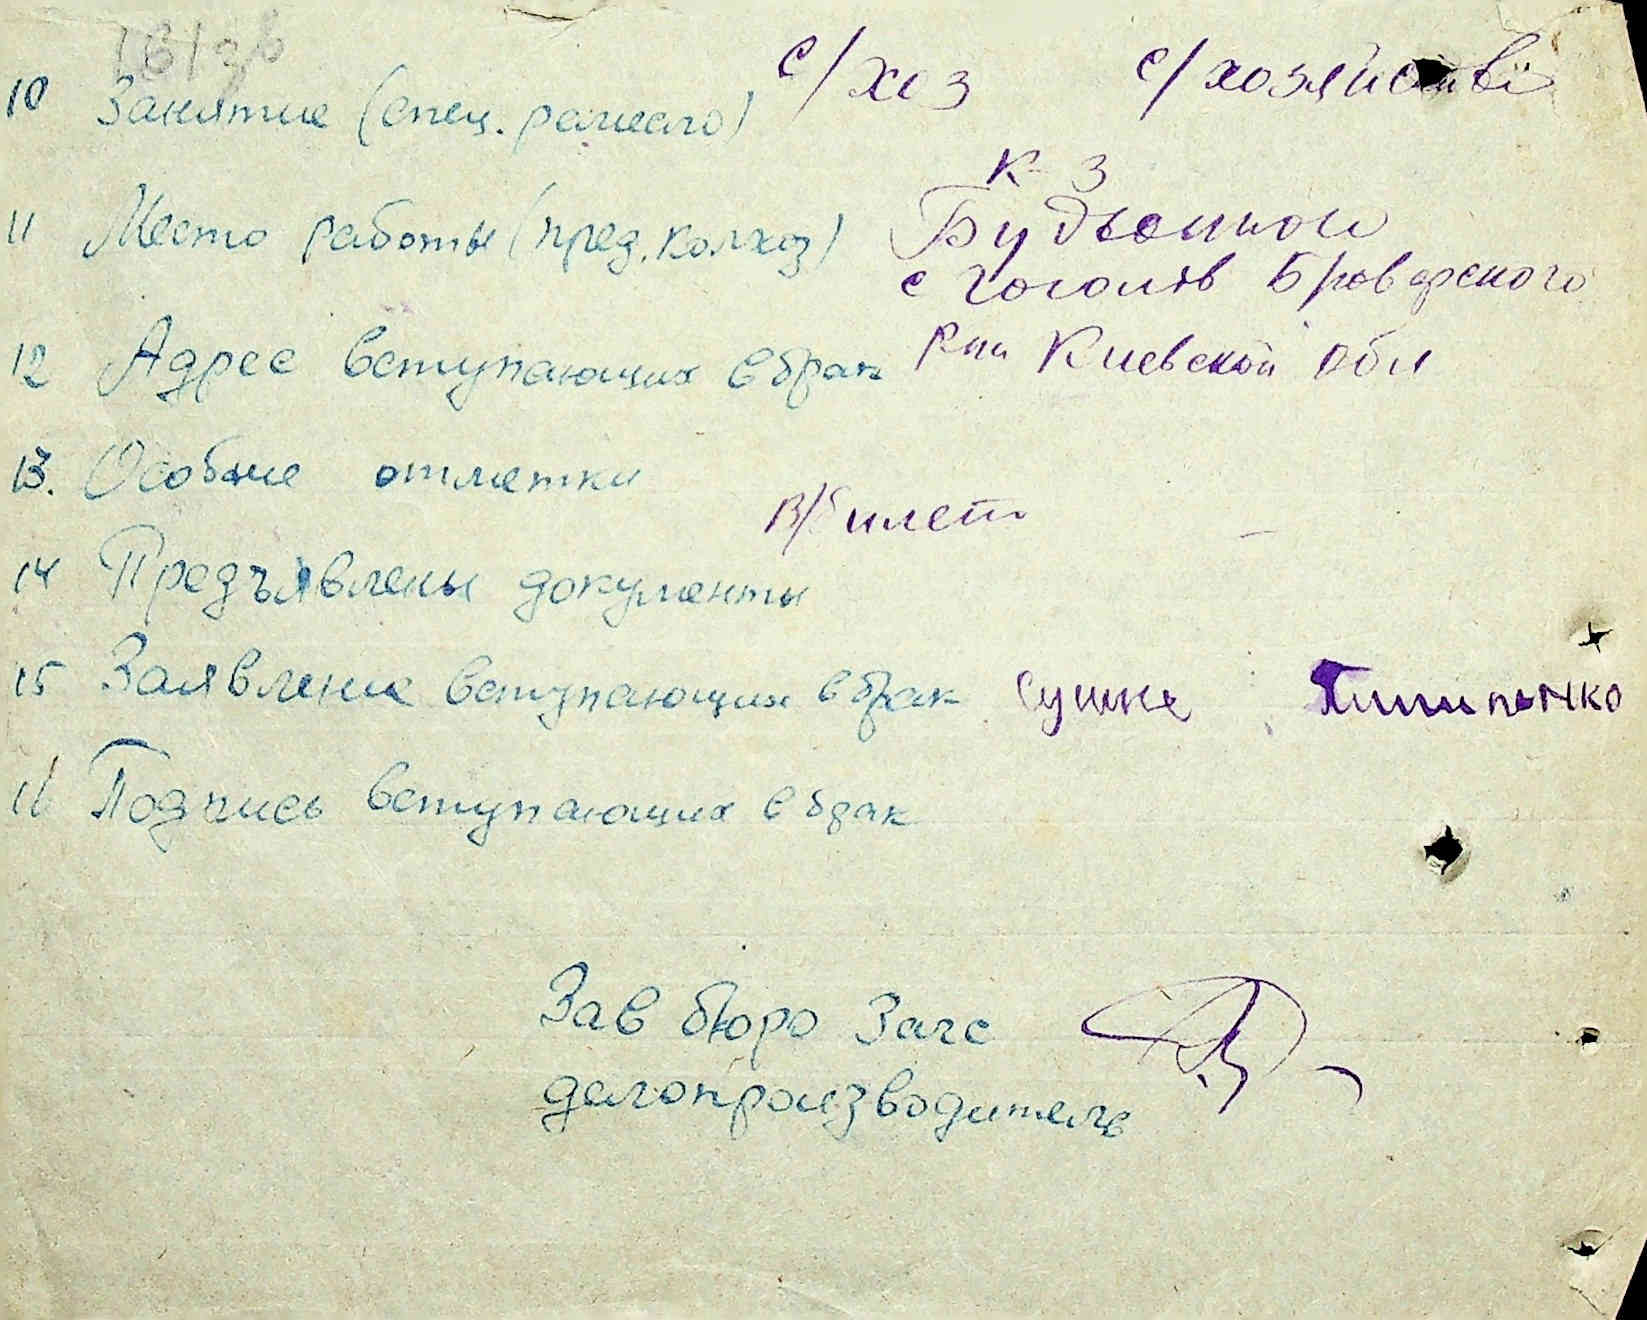 161 зв
10 Занятие (спец. ремесло) с/хоз с/хозяйстві
к-з
11 Место работы (пред. колхоз) Будьонного
с Гоголів Броварского
12 Адрес вступающих в брак р-на Киевской обл
13. Особые отметки
в/билет -
14 Предъявлены документы
15 Заявление вступающих в брак Сушке Пилипенко
16 Подпись вступающих в брак
Зав бюро Загс
делопроизводитель